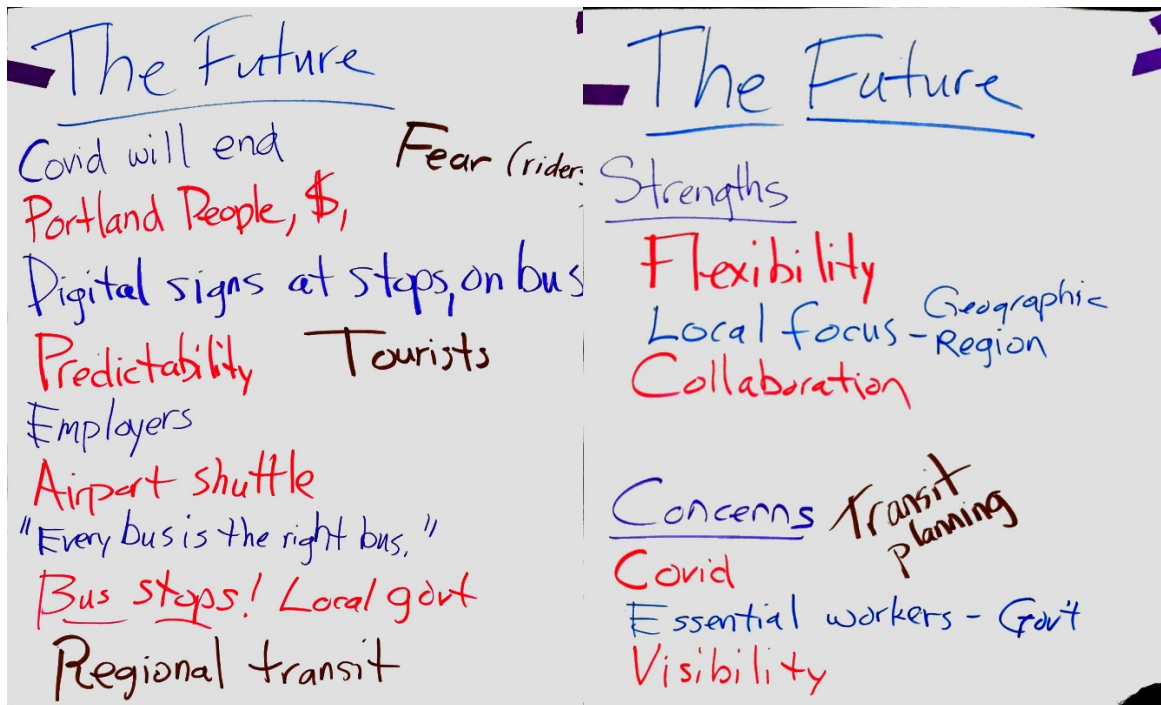 The Future
Covid will end
Fear (rider
Portland People, $,
Digital signs at stops, on bus
Predictability
Tourists
Employers
Airport shuttle
"Every bus is the right bus."
Bus stops! Local govt
Regional transit
The Future
Strengths
Flexibility
Local focus - Geographic
Region
Collaboration
Concerns
Transit
planning
Covid
Essential workers - Gov't
Visibility